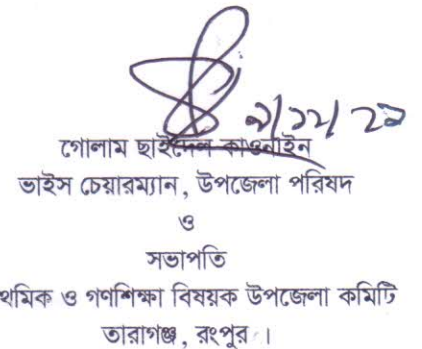 ৯/১২/২১
গোলাম ছাইদেল কাওনাইন
ভাইস চেয়ারম্যান, উপজেলা পরিষদ
ও
সভাপতি
থমিক ও গণশিক্ষা বিষয়ক উপজেলা কমিটি
তারাগঞ্জ, রংপুর ।